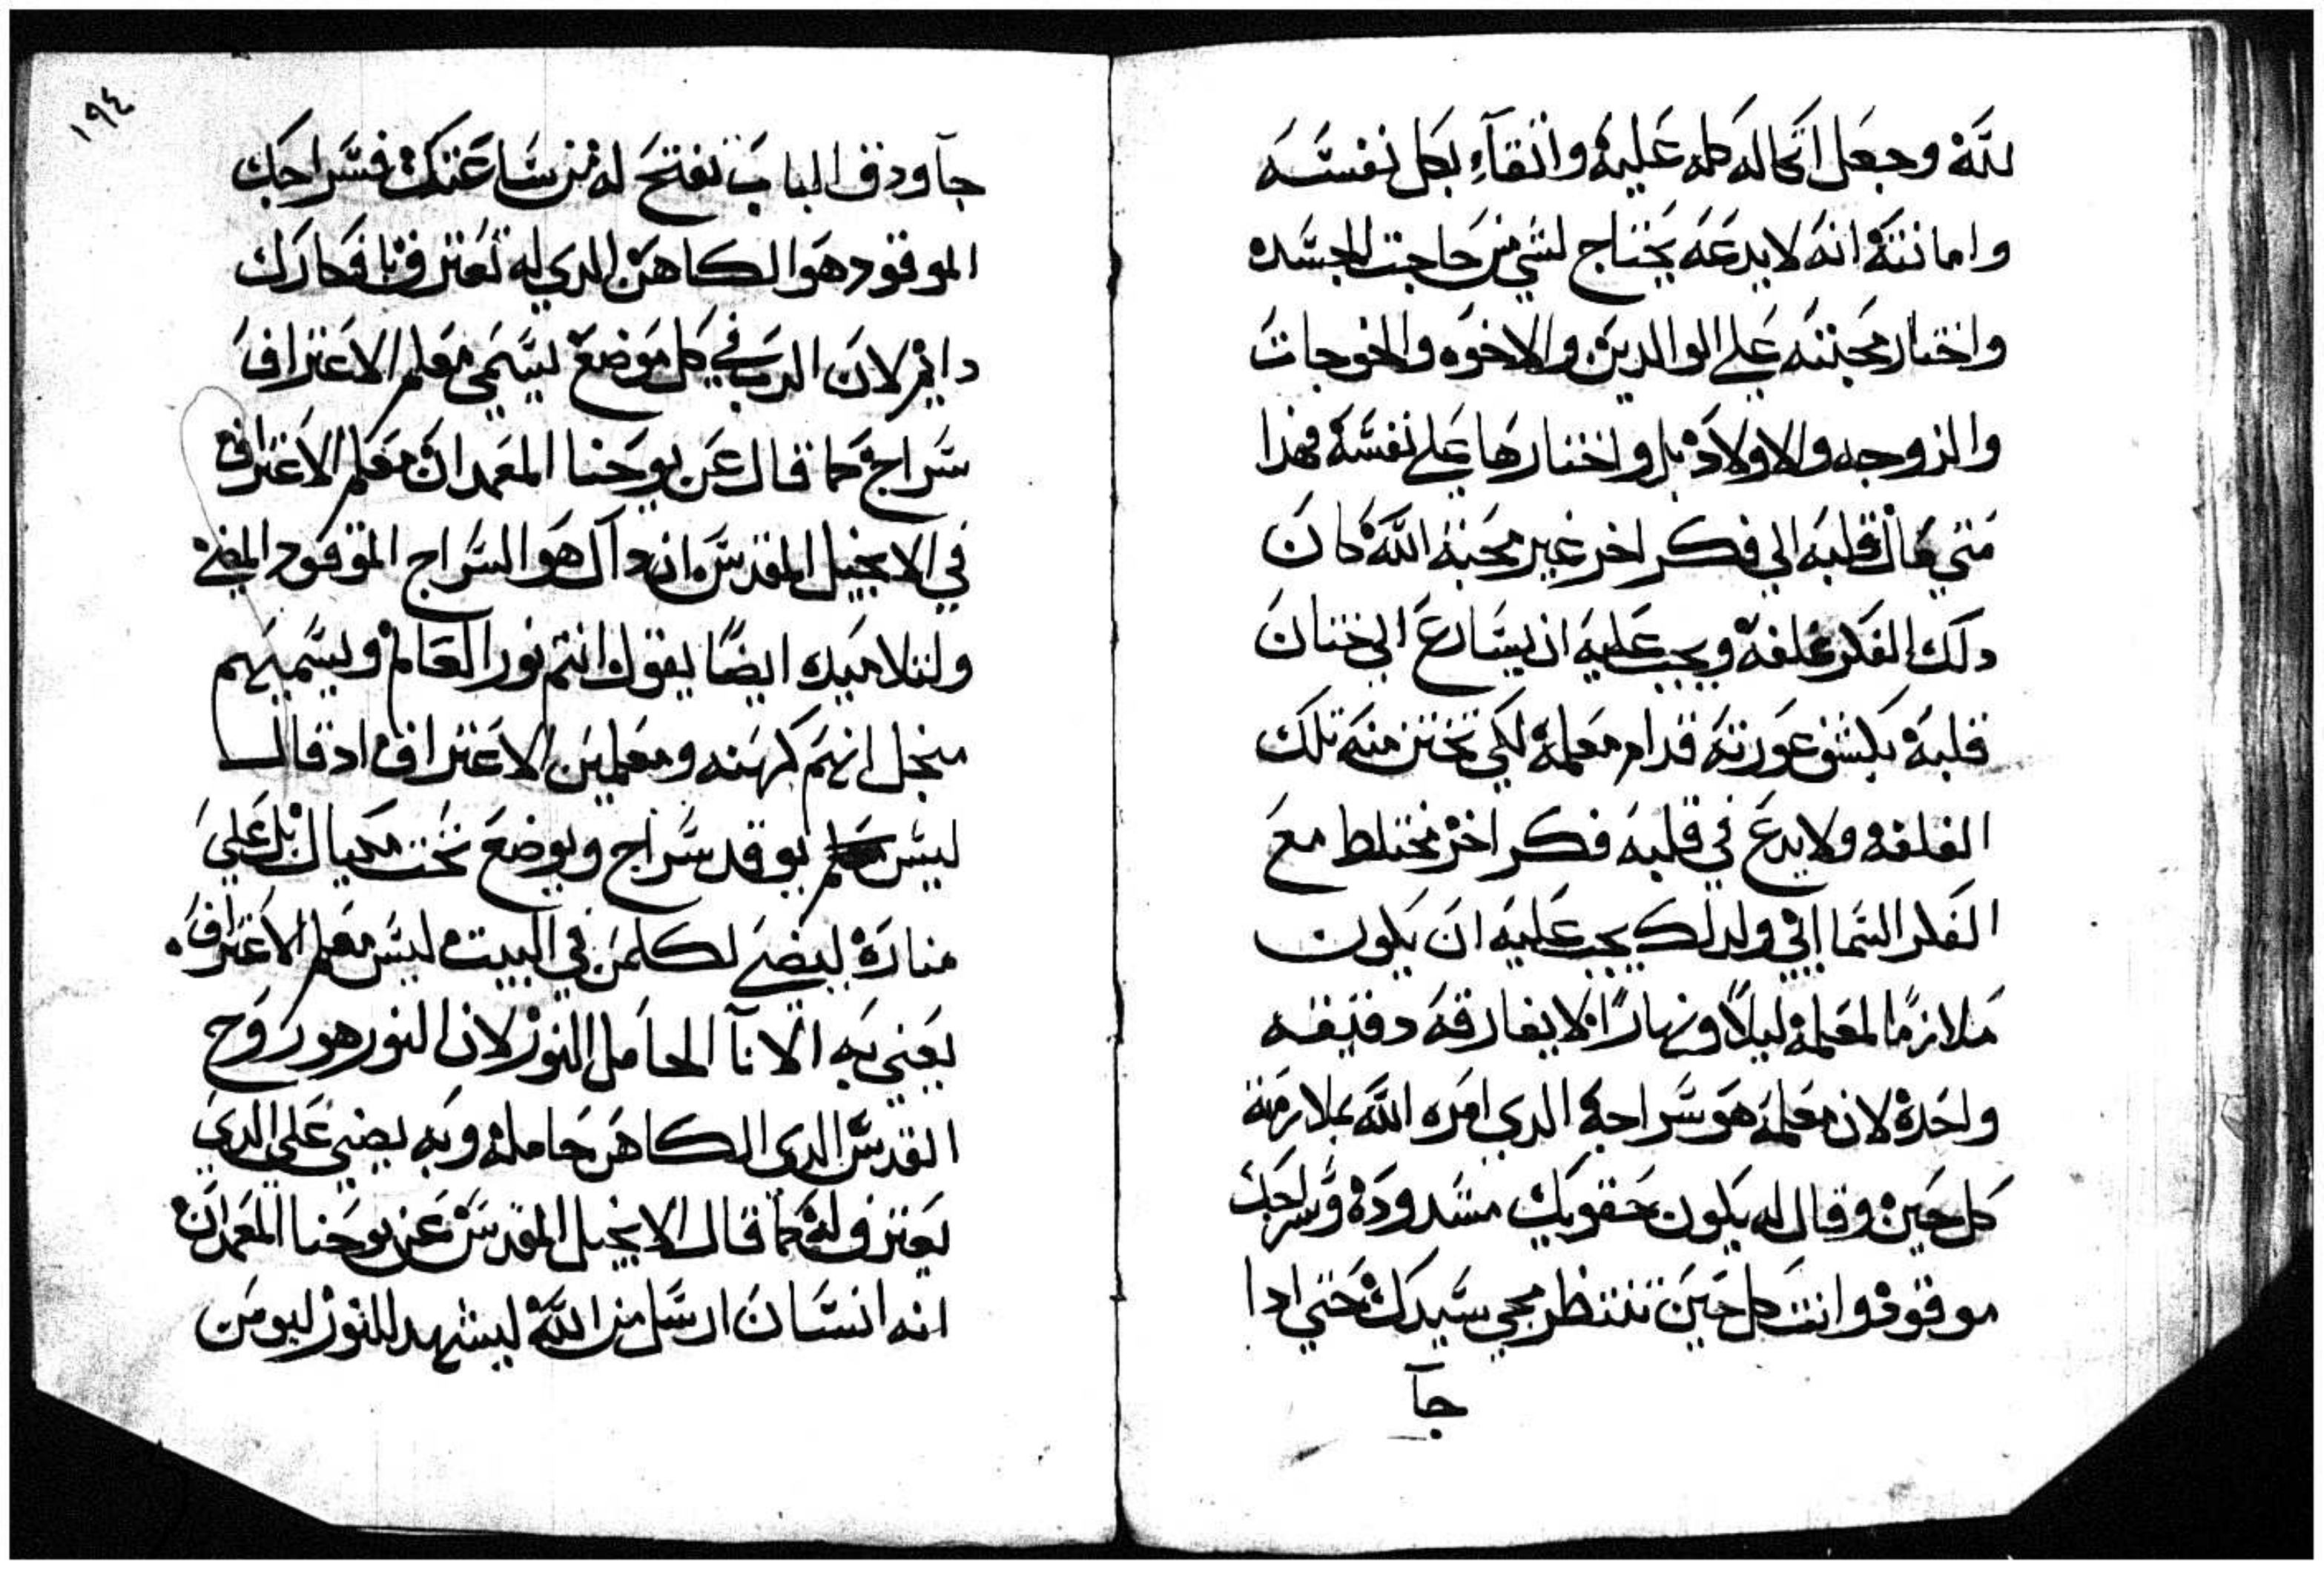 لله وجعل اتكاله كله عليه واتقاء بكل نفسه
وامانته انه لا يدعه يحتاج لشي من حاجت الجسده
واختار محبته علي الوالدين والاخوه والخوجات
والزوجه والاولاد بل واختارها علي نفسه فهدا
متي مال قلبه الي فكر اخر غير محبة الله كان
دلك الفكر غلفة ويجب عليه ان يسارع الي ختان
قلبه بكشف عورته قدام معلمه لكي تختن منه تلك
الغلفه ولا يدع في قلبه فكر اخر مختلط مع
الفكر السمااني ولدلك يجب عليه ان يكون
ملازمًا لمعلمه ليلاً ونهارًا لا يفارقه دقيقه
واحدة لان معلمه هو سراجه الدي امره الله بملازمة
كل حين وقال له يكون حقويك مشدودة وسراجك
موقود وانت كل حين تنتظر مجي سيدك حتي ادا
جآ
١٩٤
جآ ودق الباب تفتح له من ساعتك فسراجك
الموقود هو الكاهن الدي له تعترف بافكارك
دايم لان الرب في كل موضع يسمي معلم الاعتراف
سراج كما قال عن يوحنا المعمدان معلم الاعتراف
في الانجيل المقدس ان داك هو السراج الموقود المضي
ولتلاميده ايضًا يقول انتم نور العالم ويسميهم
منجل انهم كهنه ومعلمين الاعتراف اد قال
ليس يوقد سراج ويوضع تحت مكيال بل علي
منارة ليضي لكلمن في البيت ليس معلم الاعتراف
يعني به الانآ الحامل النور لان النور هو روح
القدس الدي الكاهن حامله وبه يضي علي الدي
يعترف له كما قال الانجيل المقدس عن يوحنا المعمدان
انه انسان ارسل من الله ليشهد للنور ليومن